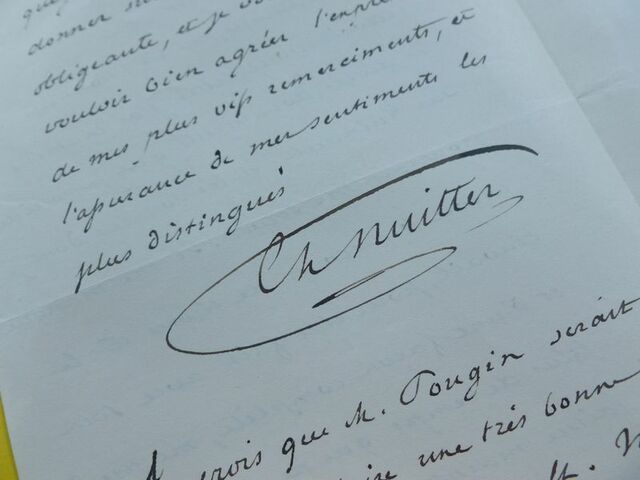 donner
obligeante, et je
vouloir bien agréer l'expre
de mes plus vifs remerciments, et
l'assurance de mes sentiments les
plus distingués
Ch Nuitter
crois que M. Pougin serait
une très bonne